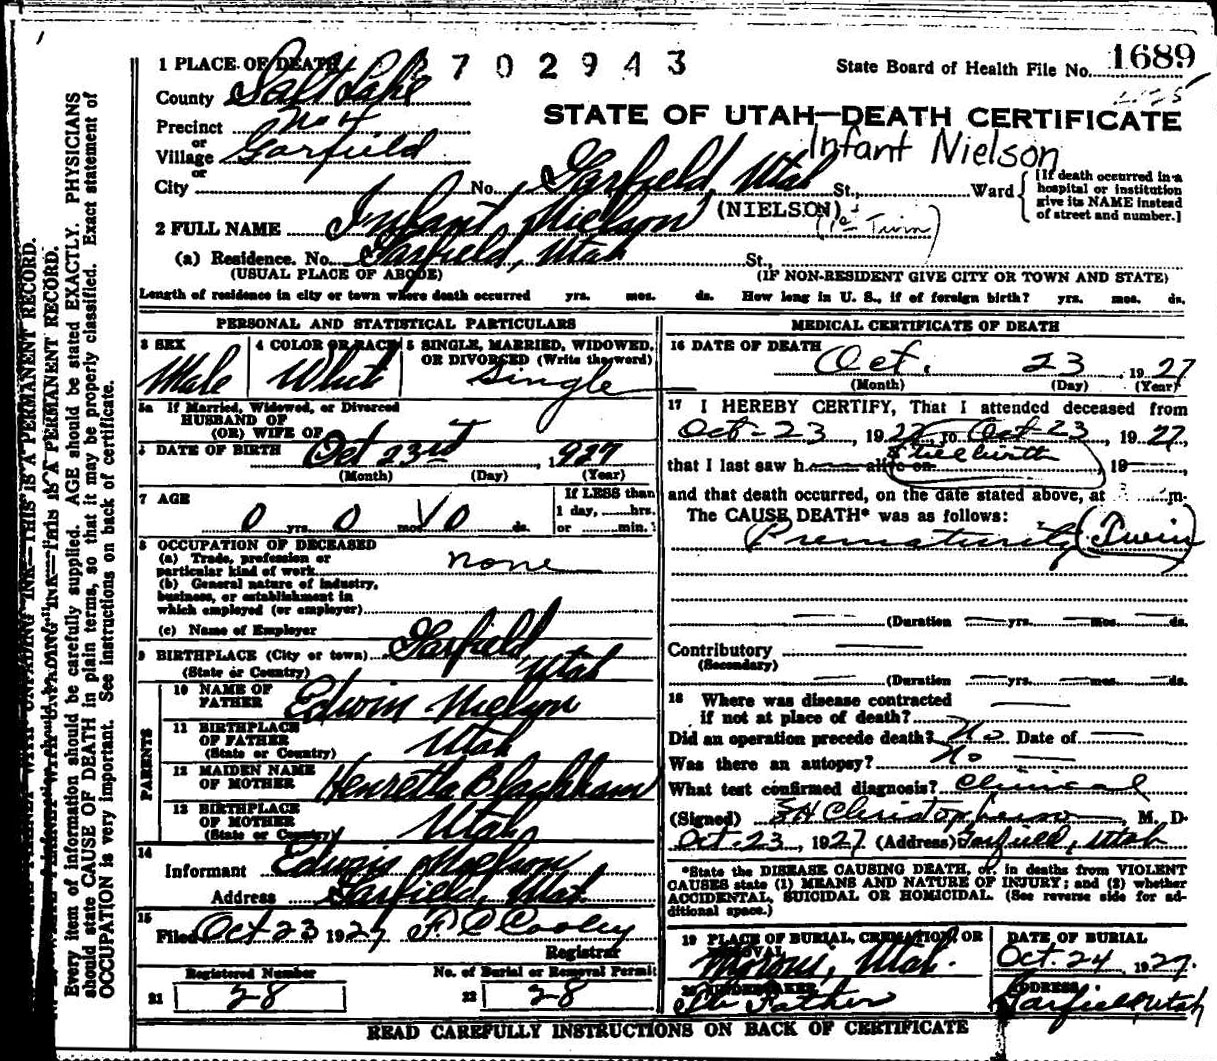 1 PLACE OF DEATH 702943
State Board of Health File No. 1689
County Salt Lake
Precinct No 4
or
Village Garfield
or
City No. Garfield, Utah St., Ward
STATE OF UTAH—DEATH CERTIFICATE
Infant Nielson
[If death occurred in a
hospital or institution
give its NAME instead
of street and number.]
2 FULL NAME Infant Nielson (NIELSON) (1st Twin)
(a) Residence. No. Garfield, Utah St.,
(USUAL PLACE OF ABODE) (IF NON-RESIDENT GIVE CITY OR TOWN AND STATE)
Length of residence in city or town where death occurred yrs. mos. ds. How long in U. S., if of foreign birth? yrs. mos. ds.
PERSONAL AND STATISTICAL PARTICULARS
3 SEX
Male
4 COLOR OR RACE
White
5 SINGLE, MARRIED, WIDOWED,
OR DIVORCED (Write the word)
Single
5a If Married, Widowed, or Divorced
HUSBAND OF
(OR) WIFE OF
DATE OF BIRTH Oct 23rd, 1927
(Month) (Day) (Year)
7 AGE
0 yrs. 0 mos. 0 ds.
If LESS than
1 day, hrs.
or min.
8 OCCUPATION OF DECEASED
(a) Trade, profession or
particular kind of work none
(b) General nature of industry,
business, or establishment in
which employed (or employer)
(c) Name of Employer
9 BIRTHPLACE (City or town) Garfield
(State or Country) Utah
PARENTS
10 NAME OF
FATHER Edwin Nielson
11 BIRTHPLACE
OF FATHER Utah
(State or Country)
12 MAIDEN NAME
OF MOTHER Henretta Blackham
13 BIRTHPLACE
OF MOTHER
(State or Country) Utah
14
Informant Edwin Nielson
Address Garfield, Utah
15
Filed Oct 23 1927 F. C. Cooley
Registrar
Registered Number
21 28
No. of Burial or Removal Permit
22 28
MEDICAL CERTIFICATE OF DEATH
16 DATE OF DEATH
Oct. 23 1927
(Month) (Day) (Year)
17 I HEREBY CERTIFY, That I attended deceased from
Oct-23, 1927, to Oct-23, 1927,
that I last saw h alive on Stillbirth, 19
and that death occurred, on the date stated above, at m.
The CAUSE DEATH* was as follows:
Prematurity (Twin)
(Duration yrs. mos. ds.
Contributory
(Secondary)
(Duration yrs. mos. ds.
18 Where was disease contracted
if not at place of death?
Did an operation precede death? No Date of
Was there an autopsy? No
What test confirmed diagnosis? Clinical
(Signed) Christopherson, M. D.
Oct-23, 1927 (Address) Garfield, Utah
*State the DISEASE CAUSING DEATH, or, in deaths from VIOLENT
CAUSES state (1) MEANS AND NATURE OF INJURY; and (2) whether
ACCIDENTAL, SUICIDAL OR HOMICIDAL. (See reverse side for ad-
ditional space.)
19 PLACE OF BURIAL, CREMATION, OR
REMOVAL
Moroni, Utah.
DATE OF BURIAL
Oct. 24, 1927.
20 UNDERTAKER
Father
ADDRESS
Garfield, Utah
READ CAREFULLY INSTRUCTIONS ON BACK OF CERTIFICATE
THIS IS A PERMANENT RECORD.
Every item of information should be carefully supplied. AGE should be stated EXACTLY. PHYSICIANS
should state CAUSE OF DEATH in plain terms, so that it may be properly classified. Exact statement of
OCCUPATION is very important. See instructions on back of certificate.